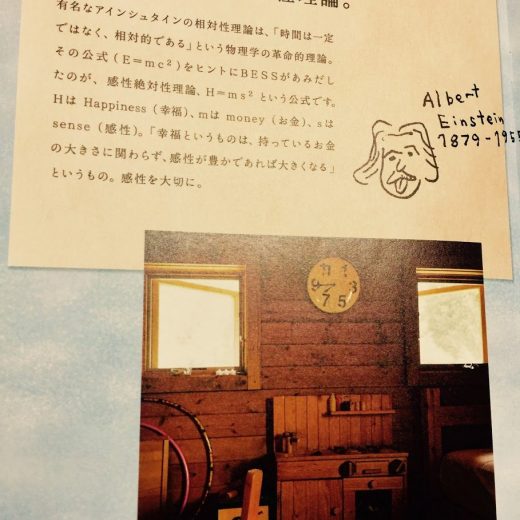 理論。
有名なアインシュタインの相対性理論は、「時間は一定
ではなく、相対的である」という物理学の革命的理論。
その公式（E＝mc²）をヒントにBESSがあみだし
たのが、感性絶対性理論、H＝ms² という公式です。
Hは Happiness（幸福）、mは money（お金）、sは
sense（感性）。「幸福というものは、持っているお金
の大きさに関わらず、感性が豊かであれば大きくなる」
というもの。感性を大切に。
Albert
Einstein
1879-1955
9 3
7 5